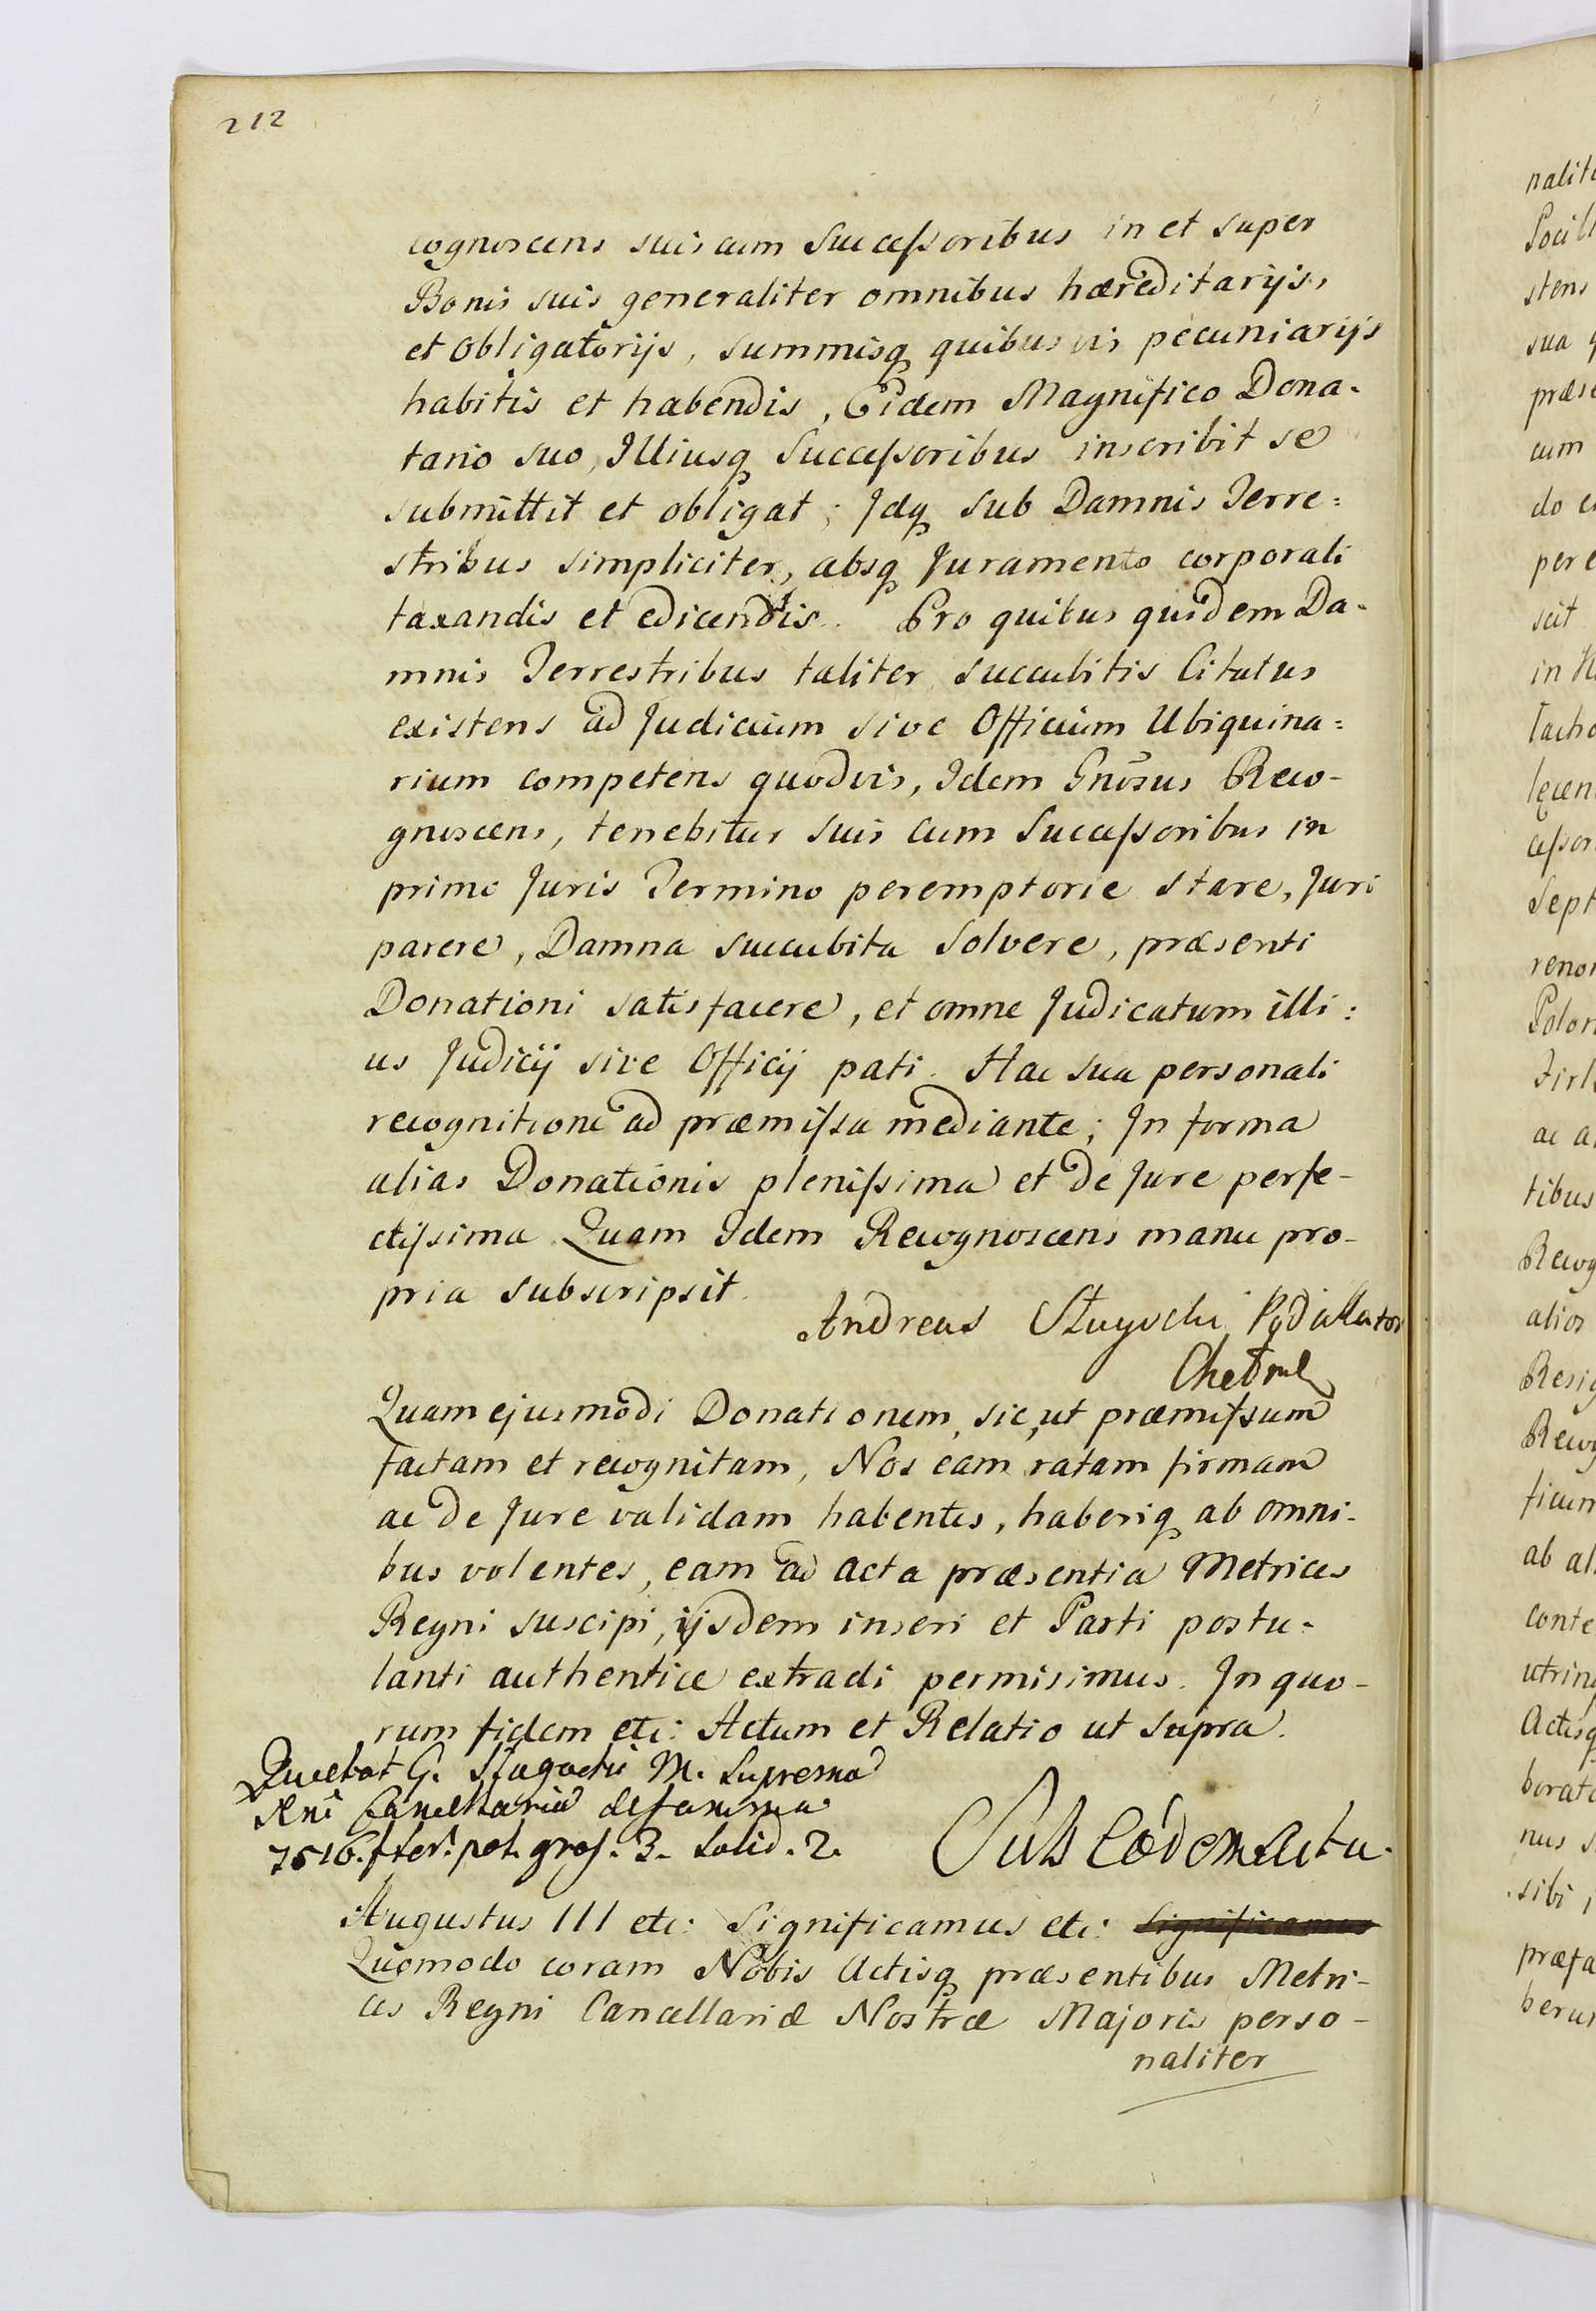 212
cognoscens suis cum Successoribus in et super
Bonis suis generaliter omnibus hæreditarijs,
et obligatorijs, summisq quibusvis pecuniarijs
habitis et habendis, Eidem Magnifico Dona-
tario suo, Illiusq Successoribus inscribit se
submittit et obligat; Idq sub Damnis Terre=
stribus simpliciter, absq Juramento corporali
taxandis et edicendis. Pro quibus quidem Da-
mnis Terrestribus taliter succubitis Citatus
existens ad Judicium sive Officium Ubiquina=
rium competens quodvis, Idem Gnosus Reco-
gnoscens, tenebitur suis cum Successoribus in
primo Juris Termino peremptorie stare, Juri
parere, Damna succubita solvere, præsenti
Donationi satisfacere, et omne Judicatum illi:
us Judicij sive Officij pati. Hac sua personali
recognitione ad præmissa mediante; In forma
alias Donationis plenissima et de Jure perfe-
ctissima. Quam Idem Recognoscens manu pro-
pria subscripsit.
Andreas
Quam ejusmodi Donationem, sic, ut præmissum
factam et recognitam, Nos eam ratam firmam
ac de Jure validam habentes, haberiq ab omni-
bus volentes, eam ad acta præsentia Metrices
Regni suscipi, ijsdem inseri et Parti postu-
lanti authentice extradi permisimus. In quo-
rum fidem etc: Actum et Relatio ut supra.
G. M. Suprema
Cancellaria
pol. gros. 3. Solid. 2.
Sub Eodem Actu.
Augustus III etc: Significamus etc: Significamus
Quomodo coram Nobis Actisq præsentibus Metri-
ces Regni Cancellariæ Nostræ Majoris perso-
naliter
nalite
stens
sua q
præse
cum
do e
per e
scit
in
tibus
Recog
alios
Resig
Recog
ficum
ab al
conte
utrinq
Actisq
borato
nus s
sibi
præfa
berun